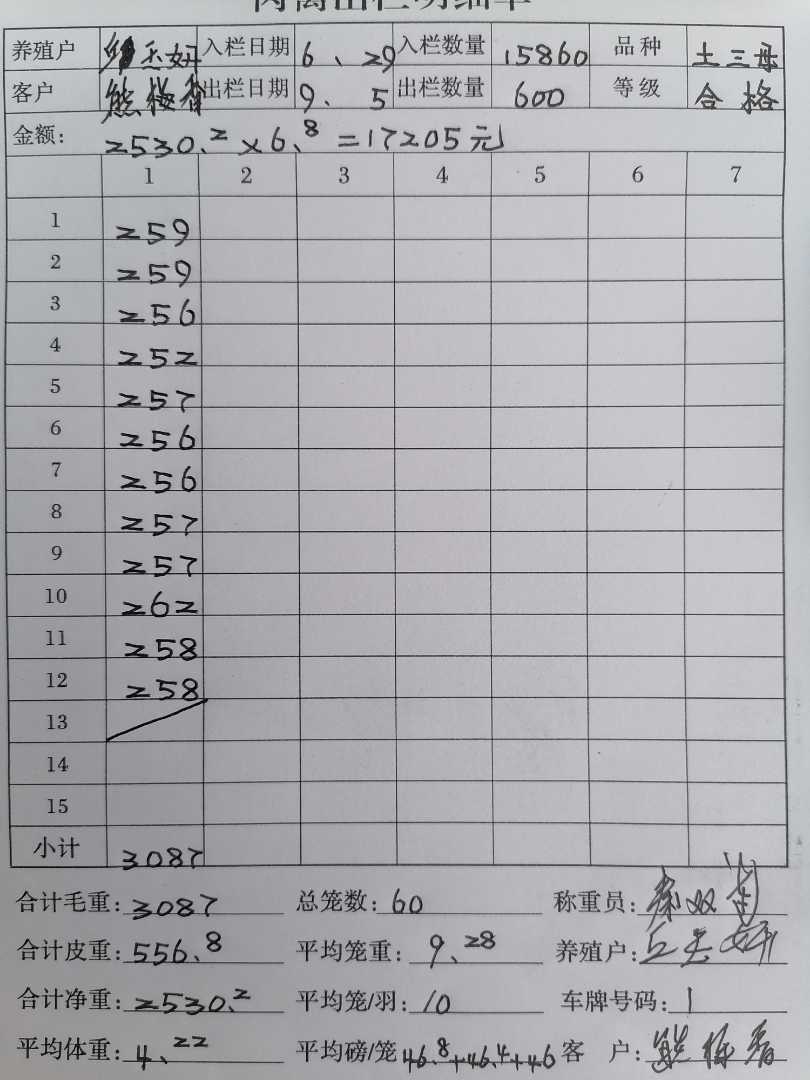 肉禽出栏明细单
养殖户 玉妍 入栏日期 6、29 入栏数量 15860 品种 土三母
客户 熊梅香 出栏日期 9、5 出栏数量 600 等级 合格
金额: 2530.2×6.8=17205元
1 2 3 4 5 6 7
1 259
2 259
3 256
4 252
5 257
6 256
7 256
8 257
9 257
10 262
11 258
12 258
13
14
15
小计 3087
合计毛重: 3087 总笼数: 60 称重员:
合计皮重: 556.8 平均笼重: 9.28 养殖户: 丘玉妍
合计净重: 2530.2 平均笼/羽: 10 车牌号码: 1
平均体重: 4.22 平均磅/笼 46.8+46.4+46 客 户: 熊梅香